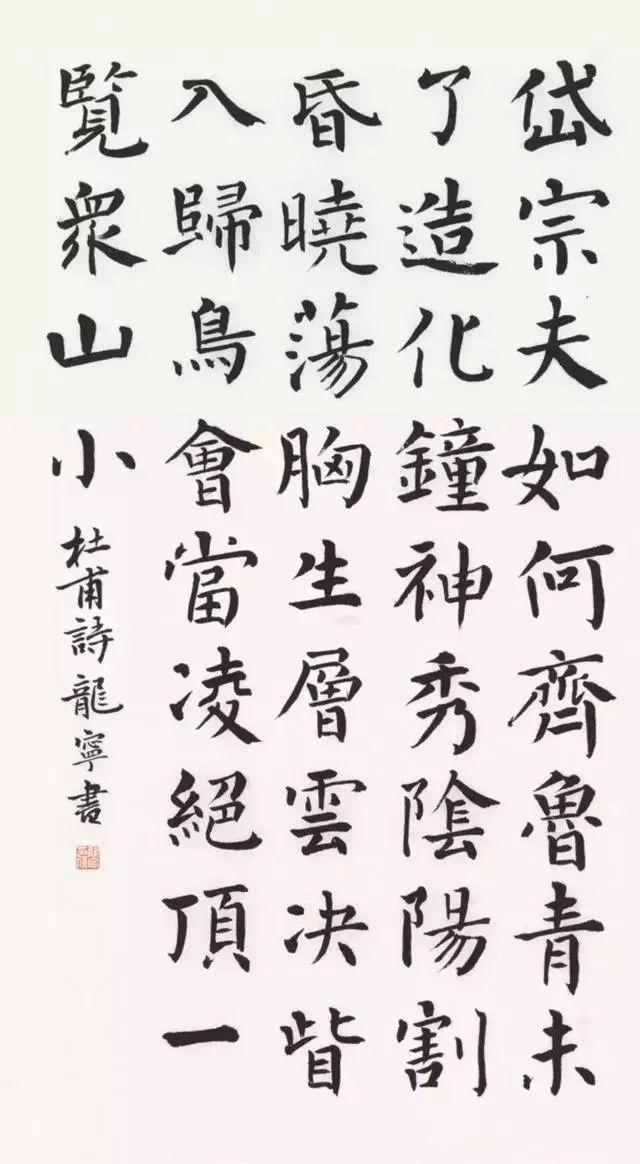 岱宗夫如何齊魯青未
了造化鐘神秀陰陽割
昏曉蕩胸生層雲決眥
入歸鳥會當凌絕頂一
覽衆山小
杜甫詩龍寧書